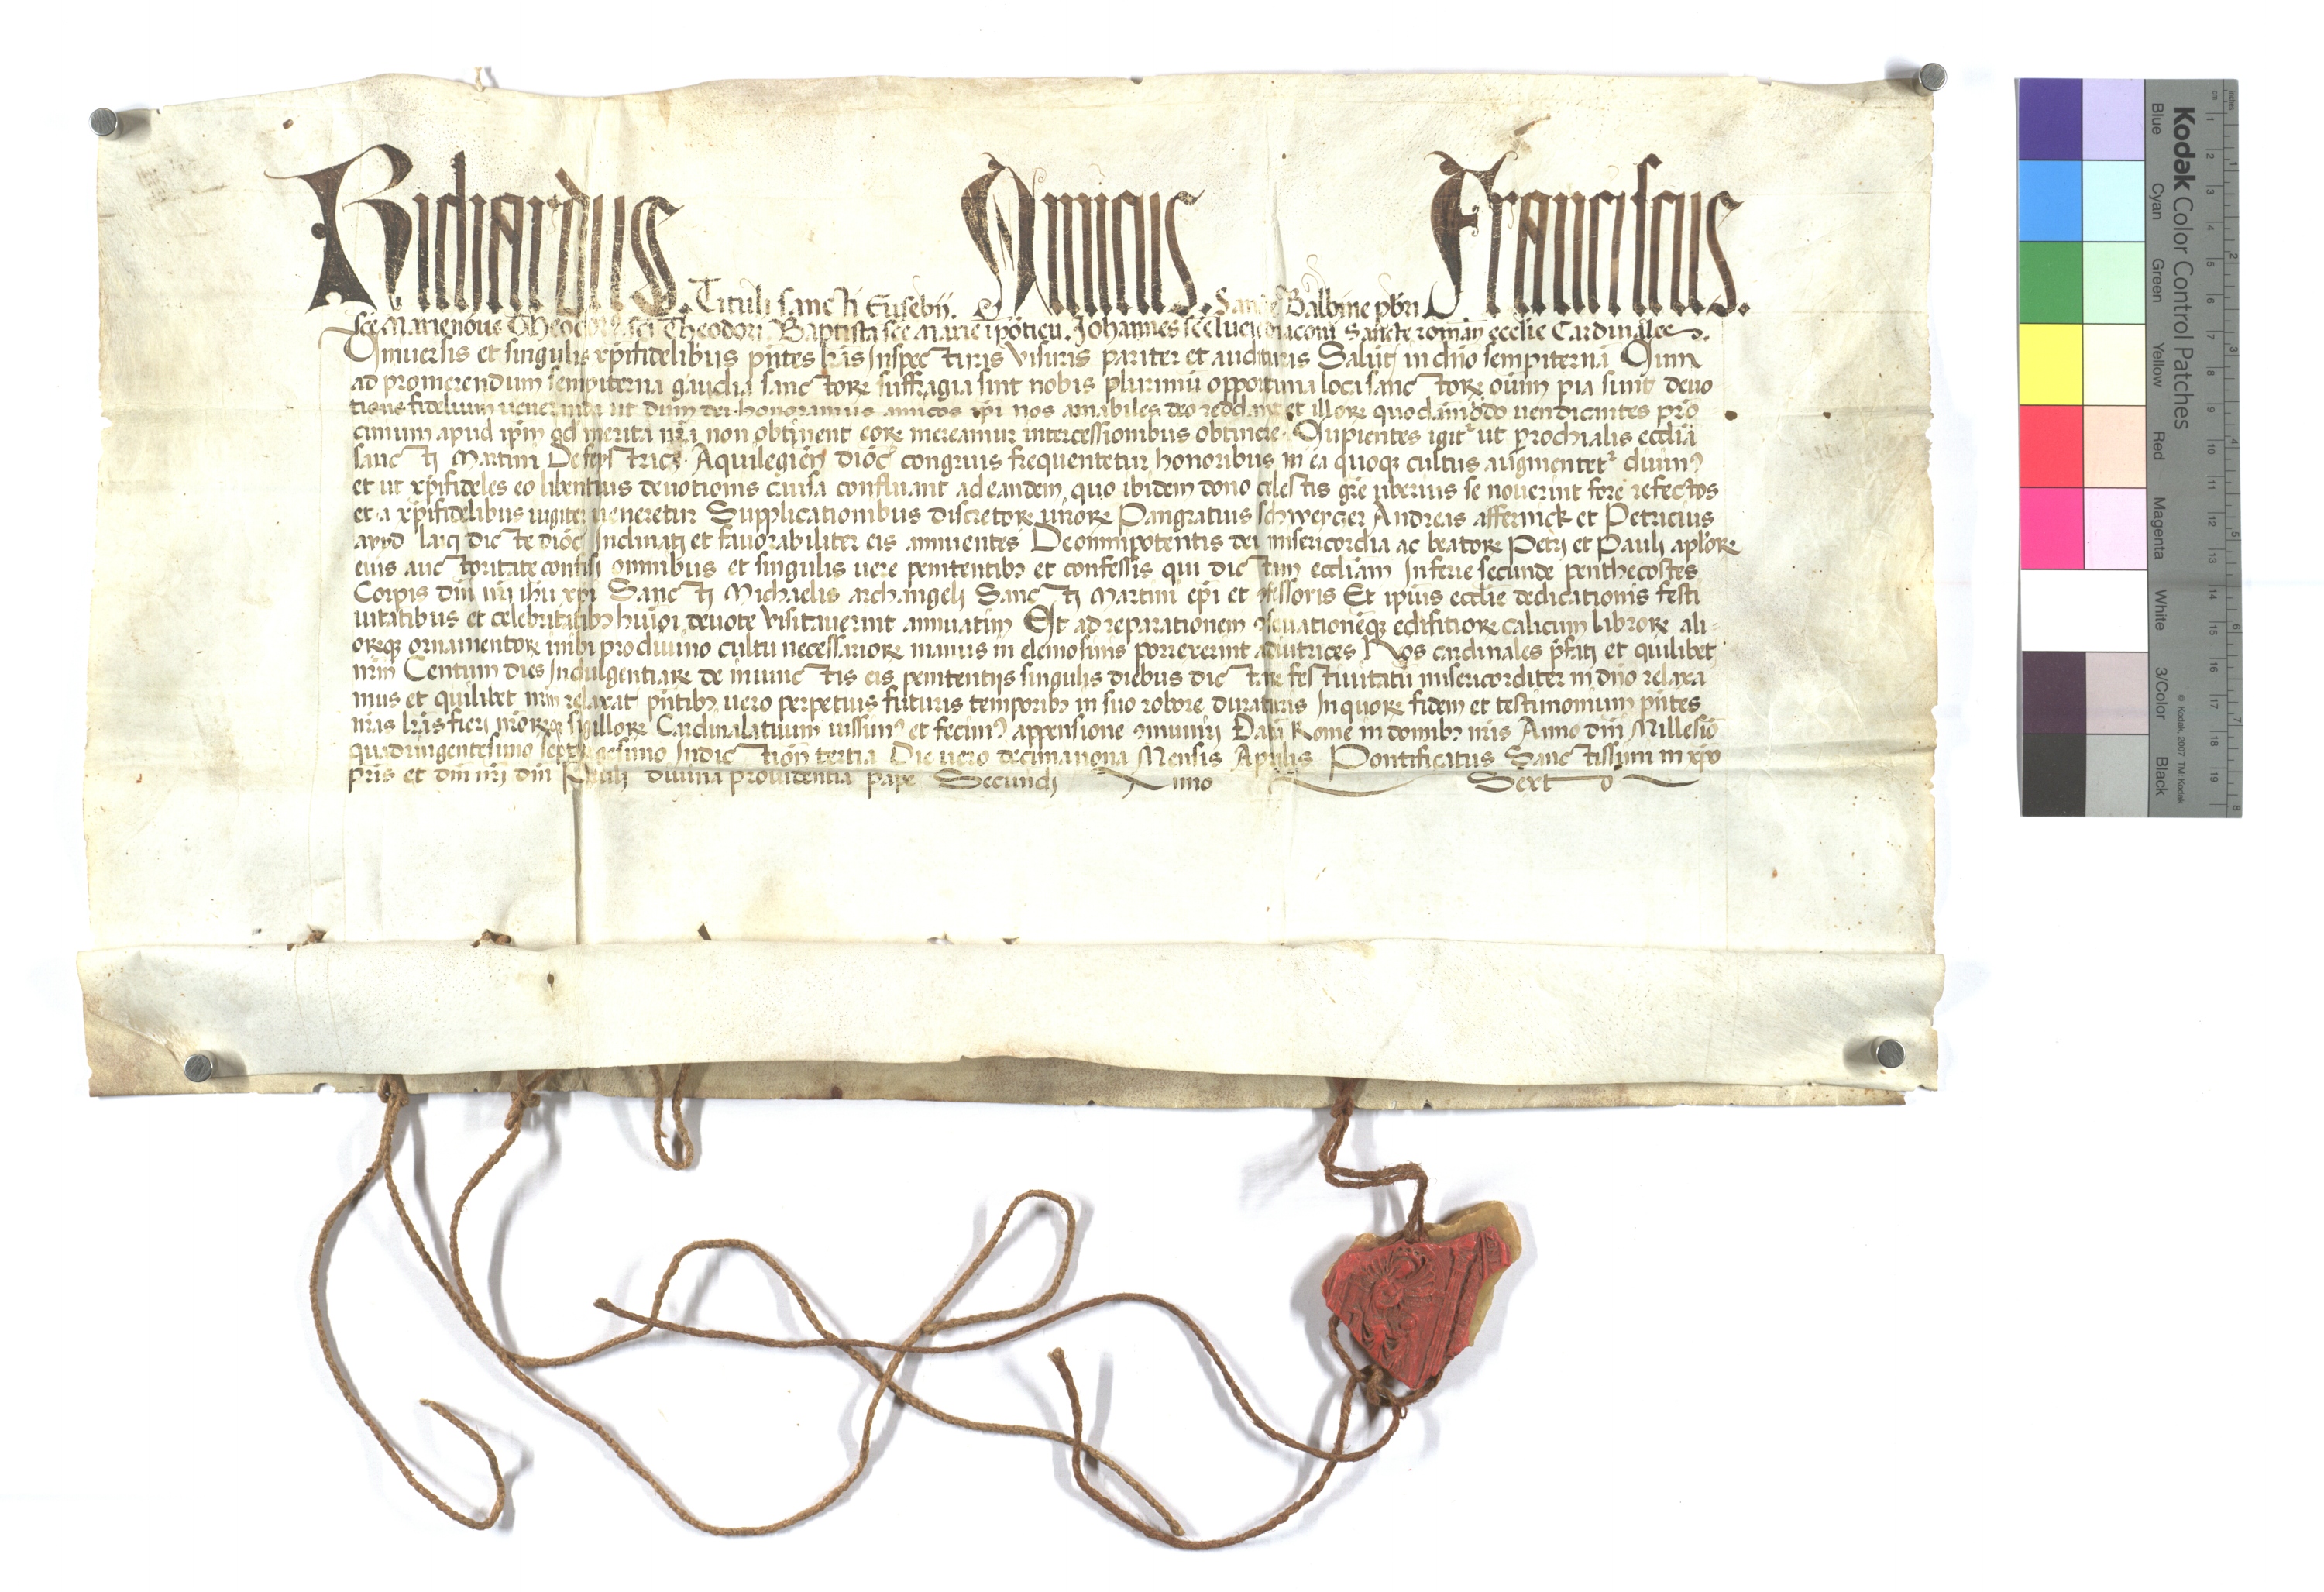 Richardus. Tituli sancti Eusebii. Amicus. Sancte Balbine pbri Franciscus.
sce Marienoue Theodorus sci Theodori Baptista sce Marie ī pōticu. Johannes sce lucie diaconi Sancte roman ecclie Cardinales.
Vniuersis et singulis xpifidelibus pntes lras Inspecturis Visuris pariter et audituris Salutē in dno sempiternā Cum
ad promerendum sempiterna gaudia sanctorꝝ suffragia sint nobis plurimū opportuna loci sanctorꝝ oūm pia sunt deuo
tione fidelium ueneranda ut dum dei honoramus amicos ipi nos amabiles deo reddant et illorꝝ quodāmodo uendicantes pro
cinium apud ipm qd merita nrā non obtinent eorꝝ mereamur intercessionibus obtinere. Cupientes igitr ut prochialis ecclia
sancti Martini De feystrics Aquilegien dioc congruis frequentetur honoribus in ea quoqꝫ cultus augmentetr diuinꝰ
et ut xpifideles eo libentius deuotionis causa confluant ad eandem, quo ibidem dono celestis gre uberius se nouerint fore refectos
et a xpifidelibus iugiter ueneretur Supplicationibus discretorꝝ uirorꝝ Pangratius schweyczer Andreas affernick et Petricius
laici dicte dioc Inclinati et fauorabiliter eis annuentes De omnipotentis dei misericordia ac beatorꝝ Petri et Pauli aplorꝝ
eius auctoritate confisi omnibus et singulis uere penitentibꝫ et confessis qui dictam ecclām In ferie secunde penthecostes
Corpis dni nri ihu xpi Sancti Michaelis archangeli Sancti Martini epi et ꝯfessoris Et ipius ecclie dedicationis festi
uitatibus et celebritatibꝫ huiōi deuote Visitauerint annuatim Et ad reparationem ꝯseruationēqꝫ edifitiorꝝ calicum librorꝝ ali-
orꝫqꝫ ornamentorꝝ inibi pro diuino cultu necessariorꝝ manus in elemosinis porrexerint adiutrices Nos cardinales pfati et quilibet
nrm Centum dies Indulgentiarꝝ de iniunctis eis penitentijs singulis diebus dictarꝝ festiuitatū misericorditer in dno relaxa
mus et quilibet nrm relaxat pntibꝫ uero perpetuis futuris temporibꝫ in suo robore duraturis In quorꝝ fidem et testimonium pntes
nras lras fieri nrorꝝqꝫ sigillorꝝ Cardinalatuum iussimꝰ et fecimꝰ appensione ꝯmuniri Datū Rome in domibꝫ nris Anno dni Millesiō
quadringentesimo septuagesimo Indiction tertia Die uero decimanona Mensis Aprilis Pontificatus Sanctissimi in xpo
pris et dni nri dni Pauli diuina prouidentia pape Secundi Anno Sexto
Kodak Color Control Patches
Blue Cyan Green Yellow Red Magenta White 3/Color Black
© Kodak, 2007 TM: Kodak
cm 1 2 3 4 5 6 7 8 9 10 11 12 13 14 15 16 17 18 19
inches 1 2 3 4 5 6 7 8